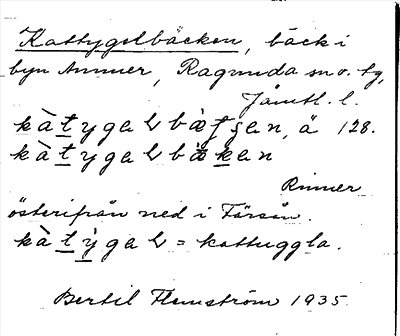 Kattygelbäcken, bäck i
byn Ammer, Ragunda sn o. tg,
Jämtl. l.
kàtygaḷbæʃʃen, ä 128.
kàtygaḷbækan
Rinner
österifrån ned i Försån.
kàtỳgaḷ = kattuggla.
Bertil Flemström 1935.